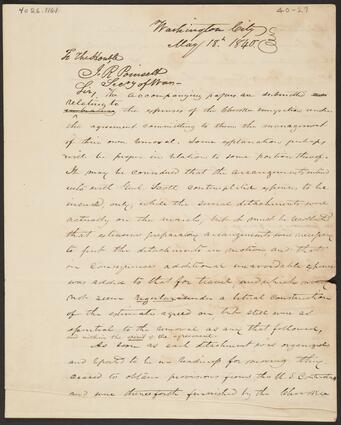 4026.1161
40-27
Washington City
May 18th 1840
To The Honble
J. R. Poinsett
Secy of War
Sir, The accompanying papers are submitted
relating to the expenses of the Cherokee emigration under
the agreement committing to them the management
of their own removal. Some explanation perhaps
will be proper in relation to some portion thereof.
It may be considered that the arrangements entered
into with Genl Scott contemplated expenses to be
incurred, only, while the several detachments were
actually on the march, but it must be
that extensive preparatory arrangements were necessary
to put the detachments in motion and that
in consequence additional unavoidable expense
was added to that for travel and which
not seem regular under a literal construction
of the estimate agreed on but still were as
essential to the removal as any that followed,
and within the spirit of the agreement.
As soon as each detachment was organized
and reported to be in readiness for moving they
ceased to obtain provisions from the U. S. Contractors
and were thenceforth furnished by the Cherokee